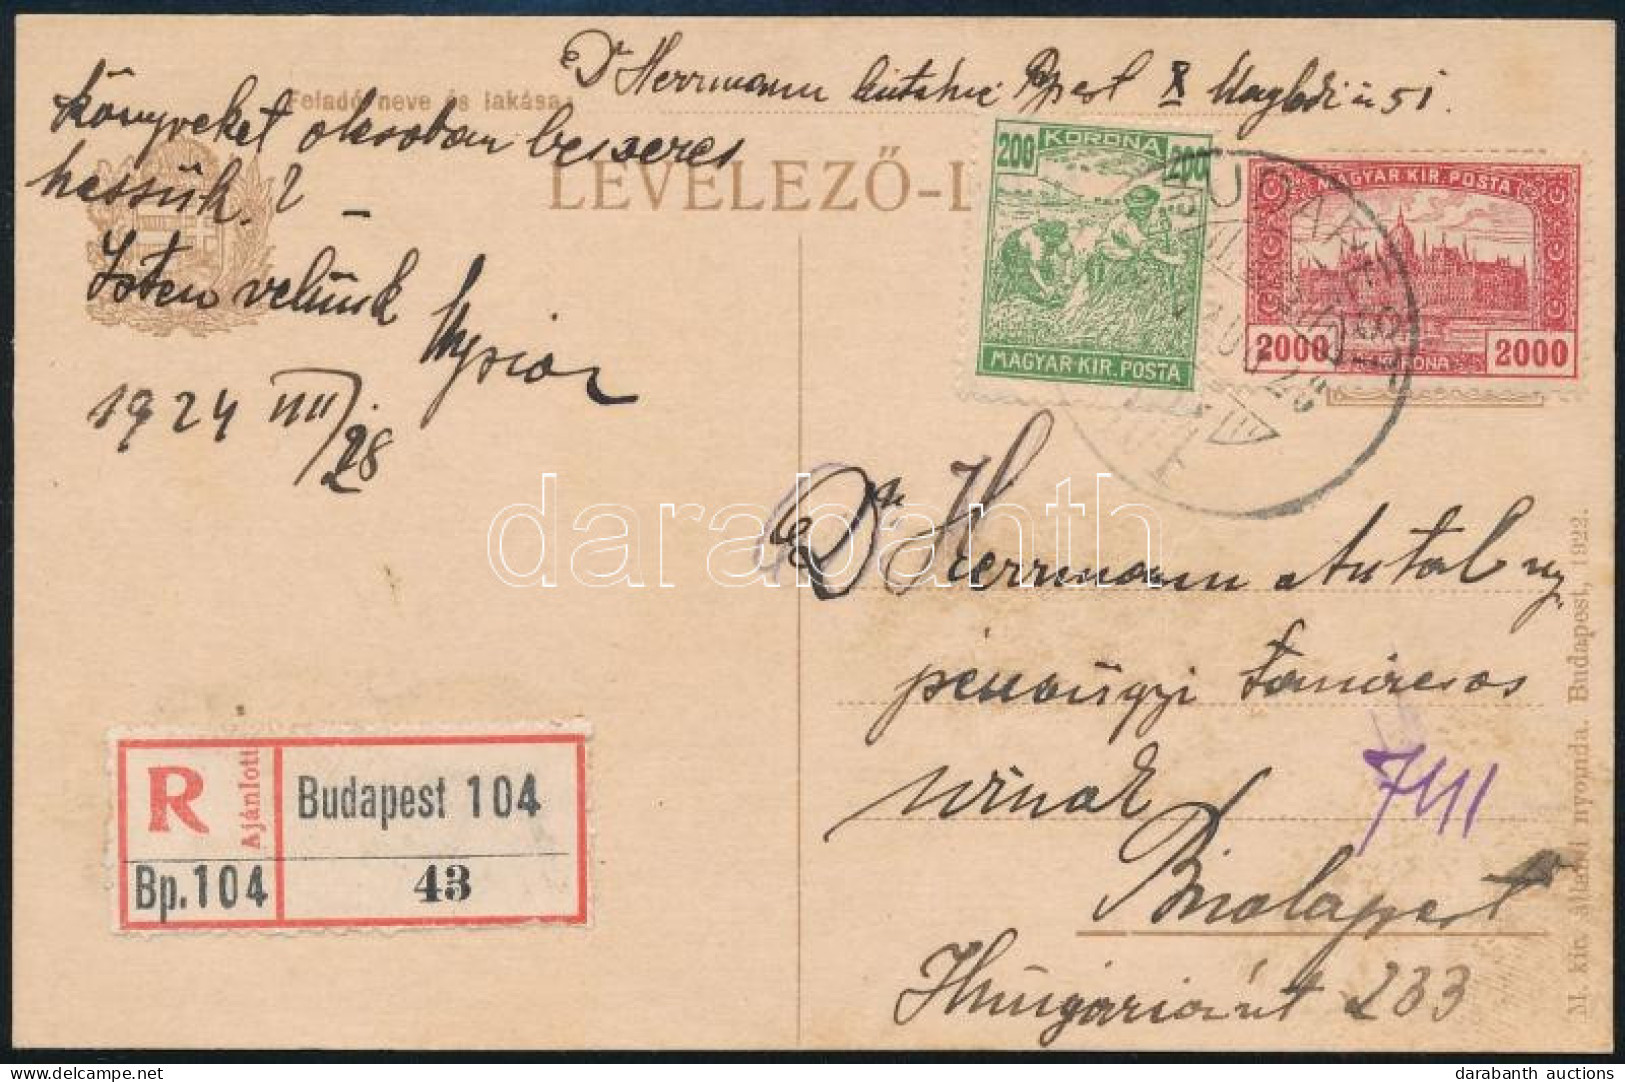 Dr Herrmann Bpest X Maglódi út 51.
Feladó neve és lakása:
könyveket olcsóban beszerez
hessük?
LEVELEZŐ-L
Isten velünk
1924 VIII/28
200 KORONA 200
MAGYAR KIR. POSTA
MAGYAR KIR. POSTA
2000 KORONA 2000
BUDAPEST
darabanth
Dr Herrmann Antal
pénzügyi tanácsos
úrnak
Budapest
Hungária út 233
7411
R Ajánlott
Budapest 104
Bp.104
43
M. kir. állami nyomda. Budapest, 1922.
darabanth auctions